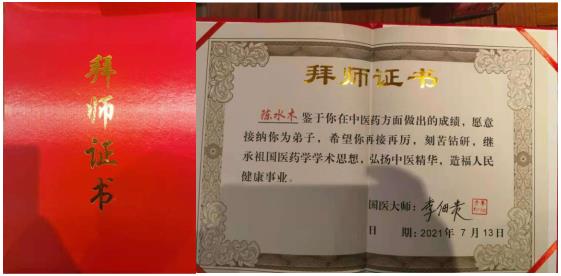 拜师证书
拜师证书
陈水木 鉴于你在中医药方面做出的成绩，愿意
接纳你为弟子，希望你再接再厉，刻苦钻研，继
承祖国医药学学术思想，弘扬中医精华，造福人民
健康事业。
国医大师：李佃贵
日 期：2021年 7 月 13日